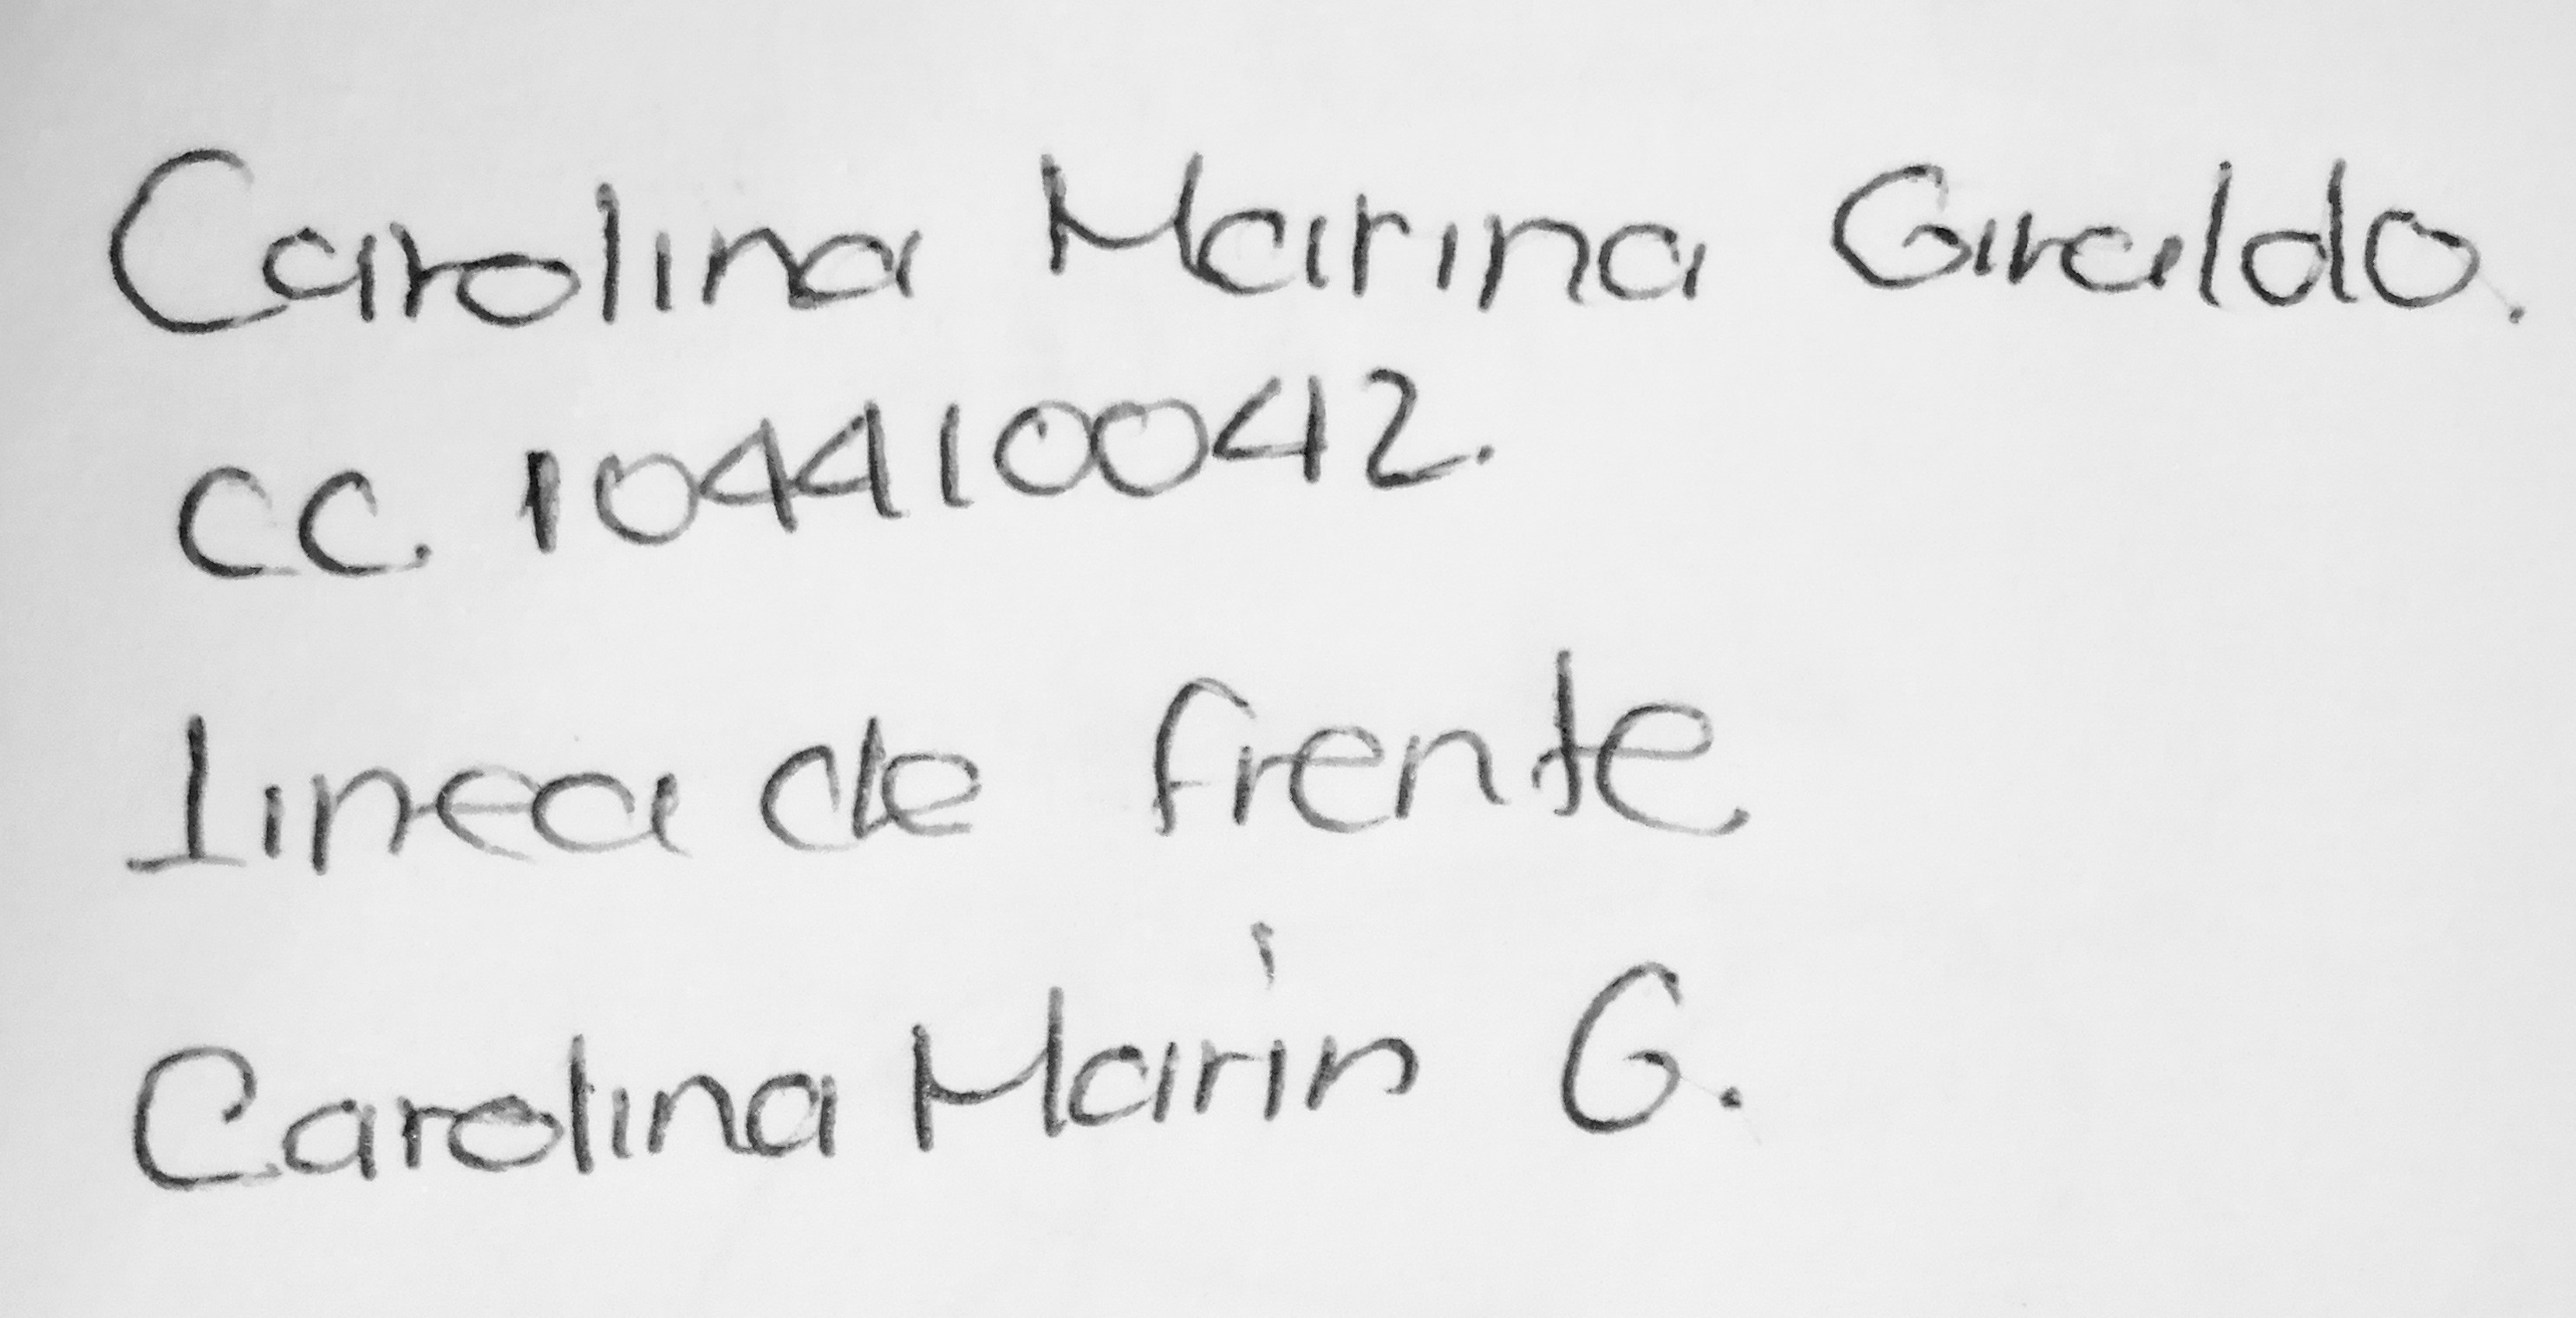 Carolina Marina Giraldo.
CC. 104410042.
linea de frente
Carolina Marín G.